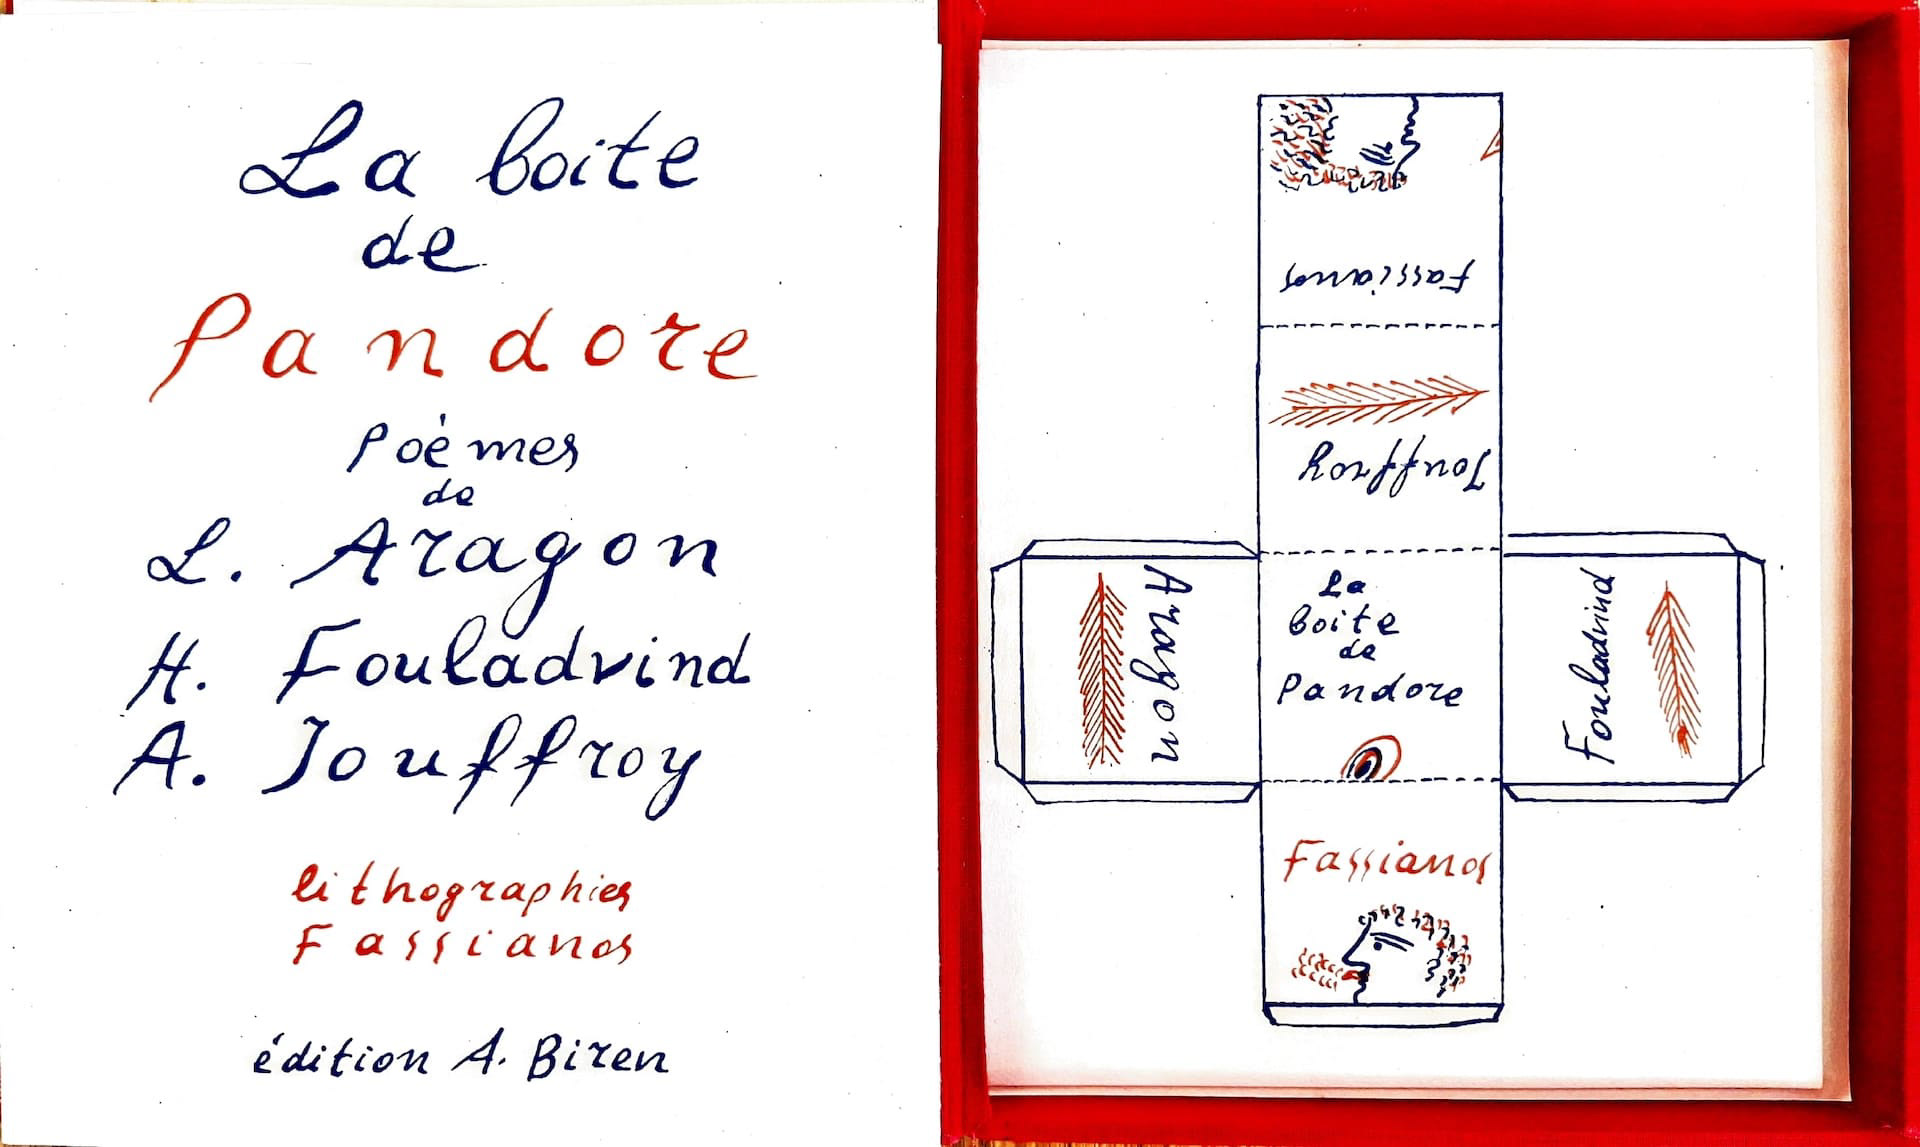 La boite
de
Pandore
Poèmes
de
L. Aragon
H. Fouladvind
A. Jouffroy
lithographies
Fassianos
édition A. Biren
Fassianos
Jouffroy
Aragon
La
boite
de
Pandore
Fouladvind
Fassianos